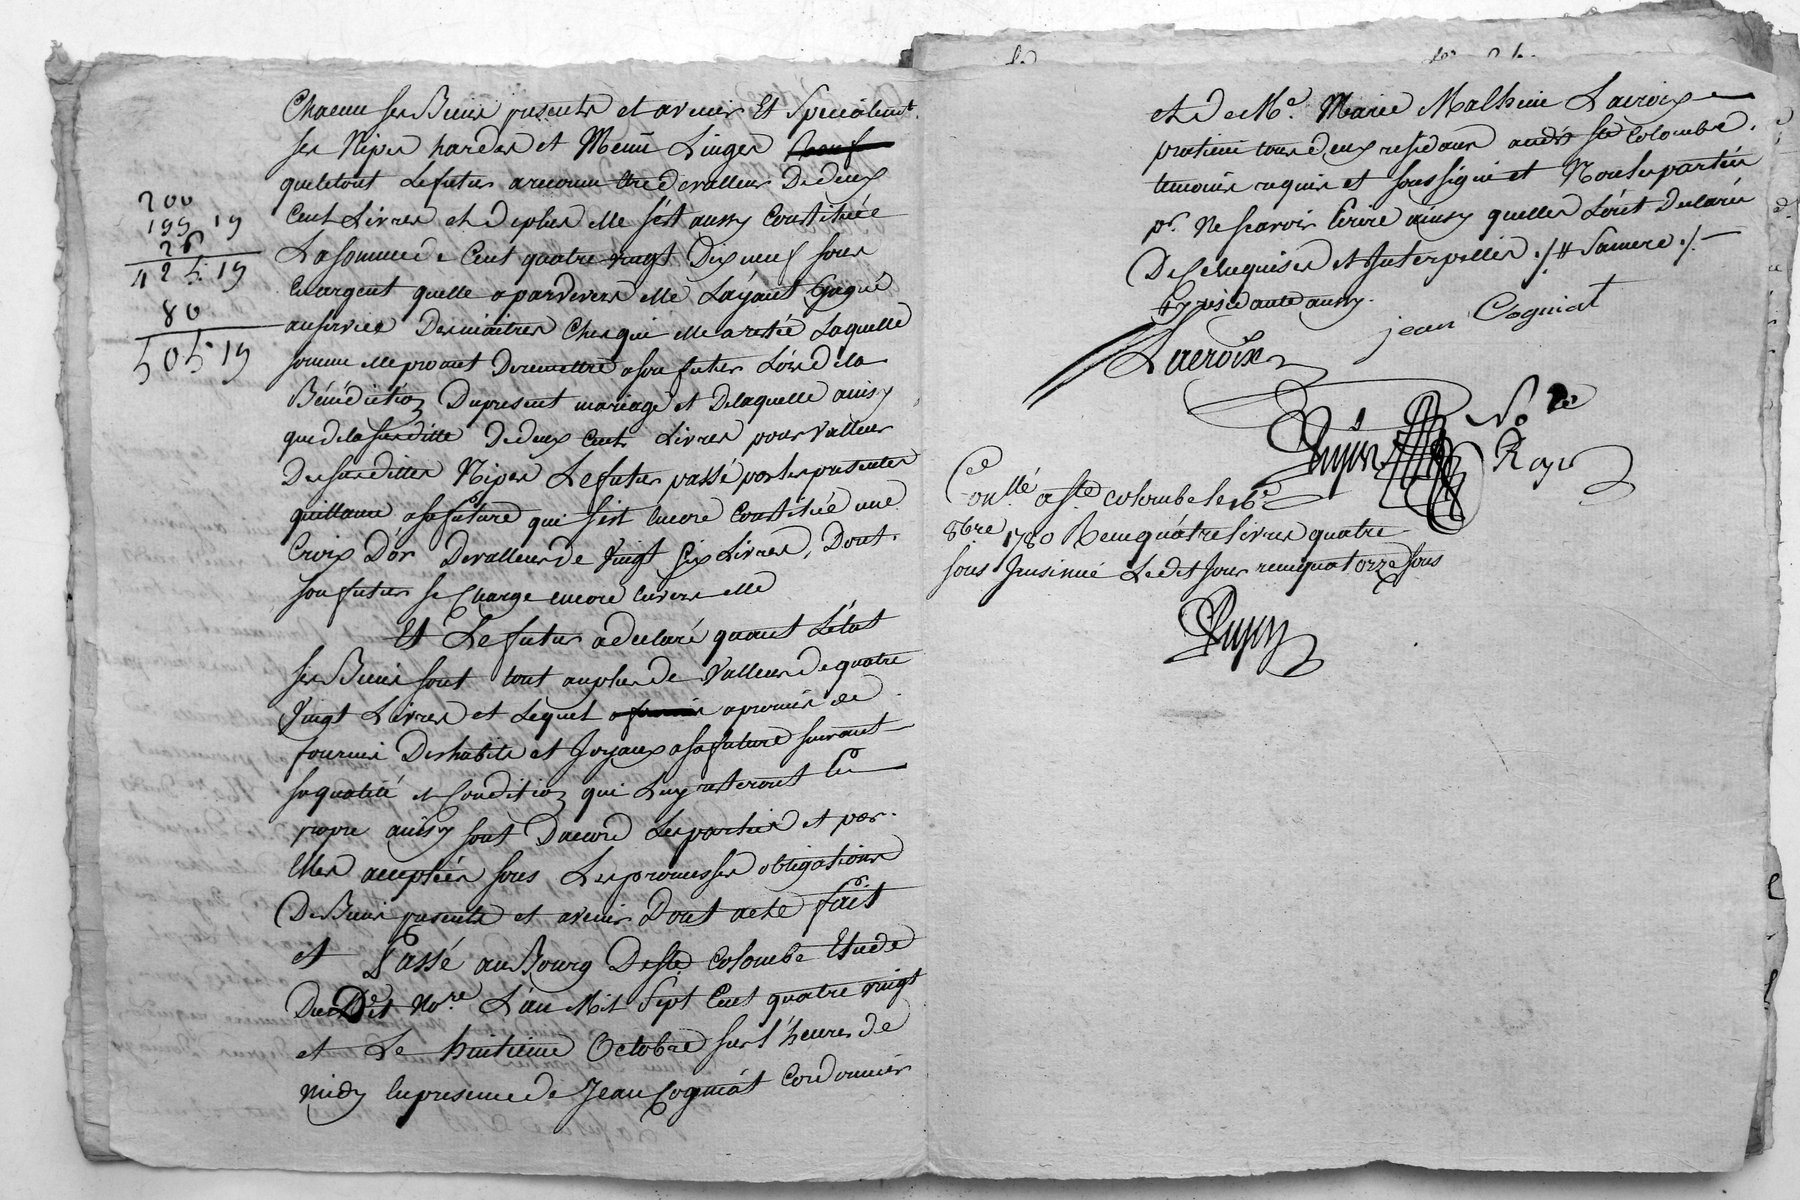 200
199 19
26
425 19
80
505 19
Chacun ses Biens presents et avenir Et Specialemt.
ses Nipes hardes et Menu Linges
que le tout Le futur a reconnu Etre de valleur De deux
Cent Livres et de plus elle s'est aussy Constituée
La somme de Cent quatre vingt Dix neuf sous
En argent quelle a pardevers elle L'ayant Gagné
au service Des maitres Chez qui elle a resté Laquelle
somme elle promet De remettre a son futur Lors de la
Bénédiction Du present mariage et De laquelle ainsy
que de la susditte De deux cent Livres pour valleur
Des susdittes Nipes Le futur passé par les presentes
quittance a sa future qui s'est encore Constituée une
Croix D'or De valleur de vingt six Livres, Dont
son futur se Charge encore envers elle
Et Le futur a declaré quant L'etat
ses Biens sont tout au plus de valleur de quatre
vingt Livres et Lequel a promis de
fournir Des habits et Joyaux a sa future suivant
sa qualité et Condition qui Luy resteront En
propre ainsy sont D'acord Les parties et par
Elles acceptées sous Les promesses obligations
De Biens presents et avenir Dont acte fait
et Passé au Bourg De Ste Colombe Etude
Du Dit Nore L'an Mil Sept Cent quatre vingt
et Le huitieme Octobre sur l'heure de
midy En presence de Jean Cogniat Cordonnier
et de Me. Marie Mathieu Lacroix
praticien tous deux residans audit Ste Colombe.
temoins requis et soussignés et Non les parties
pr. Ne scavoir Ecrire ainsy quelles L'ont Declaré
De ce Enquises et Interpellées ./# Sa mere ./.
# presidante aussy.
jean Cogniat
Lacroix
Dujon No re
Royal
Conllé a Ste Colombe le 16e
8bre 1780 Reçu quatre livres quatre
sous Insinué Ledit Jour reçu quatorze sous
Dujon